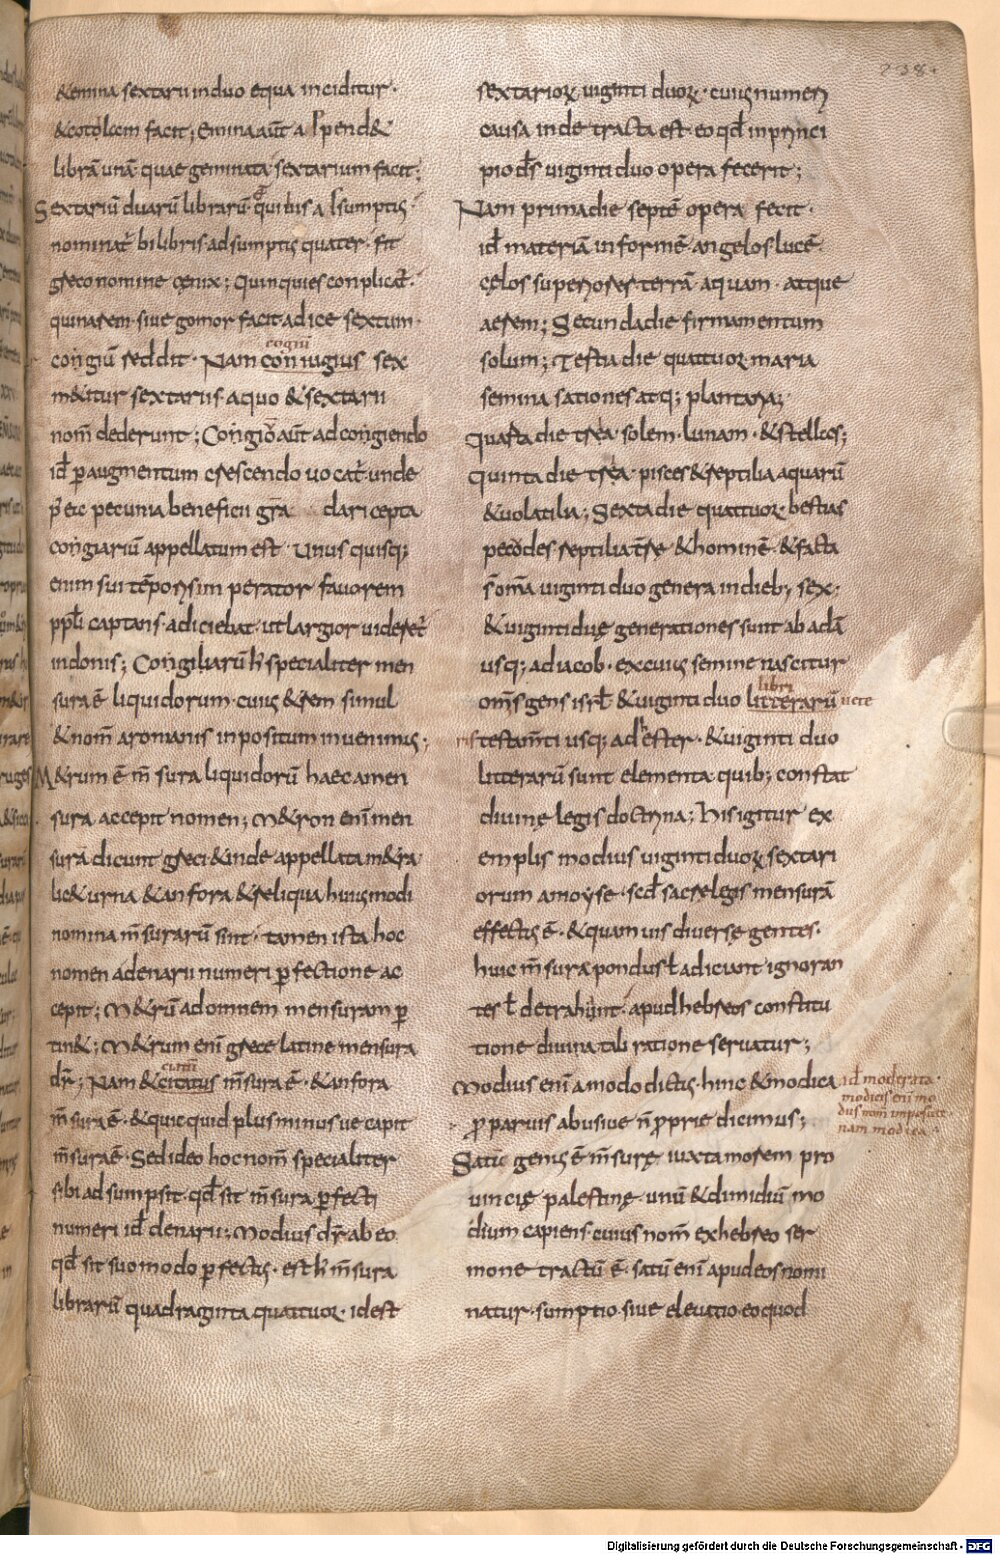 238.
&emina sextarii induo equa inciditur.
&cotolam facit; Emina aūt a Ƚ pend&
librā unā quae geminata sextarium facit;
Sextariū duarū librarū quibus a Ƚ sumptis
nominat̄ bilibris adsumptis quater fit
greco nomine cenix; Quinquies conplicat̄
quinarem siue gomor facit adice sextum
congiū reddit. Nam coniugius sex
cogiū
m&itur sextariis a quo & sextarii
nom̄ dederunt; Congiō aūt ad congiendo
id̄ p̄ augmentum crescendo uocat̄ unde
p̄ eic pecunia beneficii grā dari cepta
congiariū appellatum est. Unus quisq;
enim sui tēporis imperator fauorem
pp̄li captans adiciebat ut largior videret̄
in donis; Congiliarū h̄ specialiter men
sura ē liquidorum cuius & rem simul
& nom̄ aromanis inpositum inuenimus;
M&rum ē m̄sura liquidorū haec a men
sura accepit nomen; M&ron enī men
surā dicunt greci & inde appellata m&ra
lic& urna & anfora & reliqua huiusmodi
nomina m̄surarū sint. tamen ista hoc
nomen a denarii numeri p̄fectione ac
cepit; M&rū ad omnem mensuram p̄
tin&; M&rum enī grece latine mensura
dr̄; Nam & citatus m̄sura ē. & anfora
m̄sura ē. & quic quid plus minus ue capit
m̄sura ē. Sed ideo hoc nom̄ specialiter
sibi adsumpsit. qd̄ sit m̄sura p̄fecti
numeri id̄ denarii; Modius dr̄ ab eo
qd̄ sit suo modo p̄fectus. est h̄ m̄sura
librarū quadraginta quattuor. id est
sextarioꝝ uiginti duoꝝ. cuius numeri
causa inde tracta est. eo qd̄ in princi
pio ds̄ uiginti duo opera fecerit;
Nam prima die septē opera fecit.
id̄ materiā informē. angelos lucē.
cęlos superiores terrā aquam. atque
aerem; Secunda die firmamentum
solum; Tertia die quattuor maria
semina sationes atq; plantaria;
Quarta die tria. solem. lunam. & stellas;
Quinta die tria. pisces & reptilia aquarū
& uolatilia; Sexta die quattuor. bestias
pecodes reptilia tr̄e & hominē & facta
s̄ om̄a uiginti duo genera in dieb; sex;
& uiginti duę generationes sunt ab adā
usq; ad iacob. ex cuius semine nascitur
om̄s gens isrƚ & uiginti duo litterarū uete
libri
ris testam̄ti usq; ad ester. & uiginti duo
litterarū sunt elementa. quib; constat
diuinę legis doctrina; His igitur ex
emplis modius uiginti duoꝝ sextari
orum a moyse. scd̄ sacre legis mensurā
effectus ē. & quam uis diuerse gentes.
huic m̄surae pondus ƚ adiciant ignoran
tes ƚ detrahunt. apud hebreos constitu
tione diuina tali ratione seruatur;
Modius enī a modo dictus. hinc & modica
id̄ moderata.
modicis enī mo
dus nom̄ imposuit.
nam modica
ꝓ paruis abusiue n̄ ꝓprie dicimus;
Satū genus ē m̄surę iuxta morem pro
uincię palestinę. unū & dimidiū mo
dium capiens. cuius nom̄ ex hebreo ser
mone tractū ē. satū enī apud eos nomi
natur. sumptio. siue eleuatio. eo quod
Digitalisierung gefördert durch die Deutsche Forschungsgemeinschaft - DFG